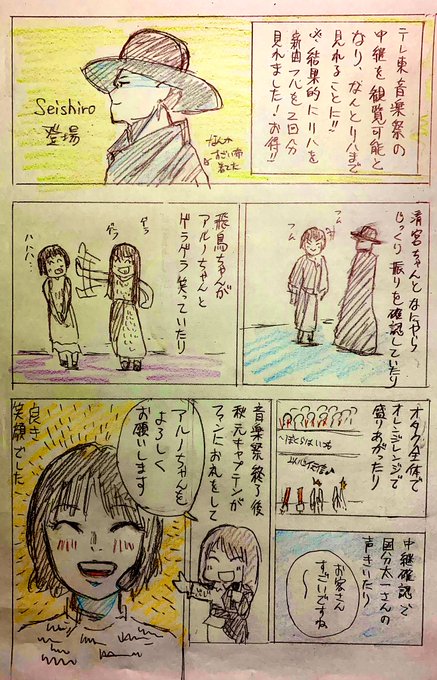 テレ東音楽祭の
中継を観覧可能と
なり、なんとリハまで
見れることに!!
※結果的にリハを
新曲フルを2回分
見れました!お得!!
Seishiro
登場
なんか
すごい布
着てた
青宮ちゃんとなにやら
じっくり振りを確認していたり
フム
フム
飛鳥ちゃんが
アルノちゃんと
ゲラゲラ笑っていたり
ゲラ
ゲラ
ハハハ…
オタク全体で
オレンジレンジで
盛りあがったり
〜ぼくらはいつも
中継確認で
国分太一さんの
声きいたり
お客さん
すごいですね
〜
音楽祭終了後
秋元キャプテンが
ファンにお礼をして
アルノちゃんを
よろしく
お願いします
良き
笑顔でした…